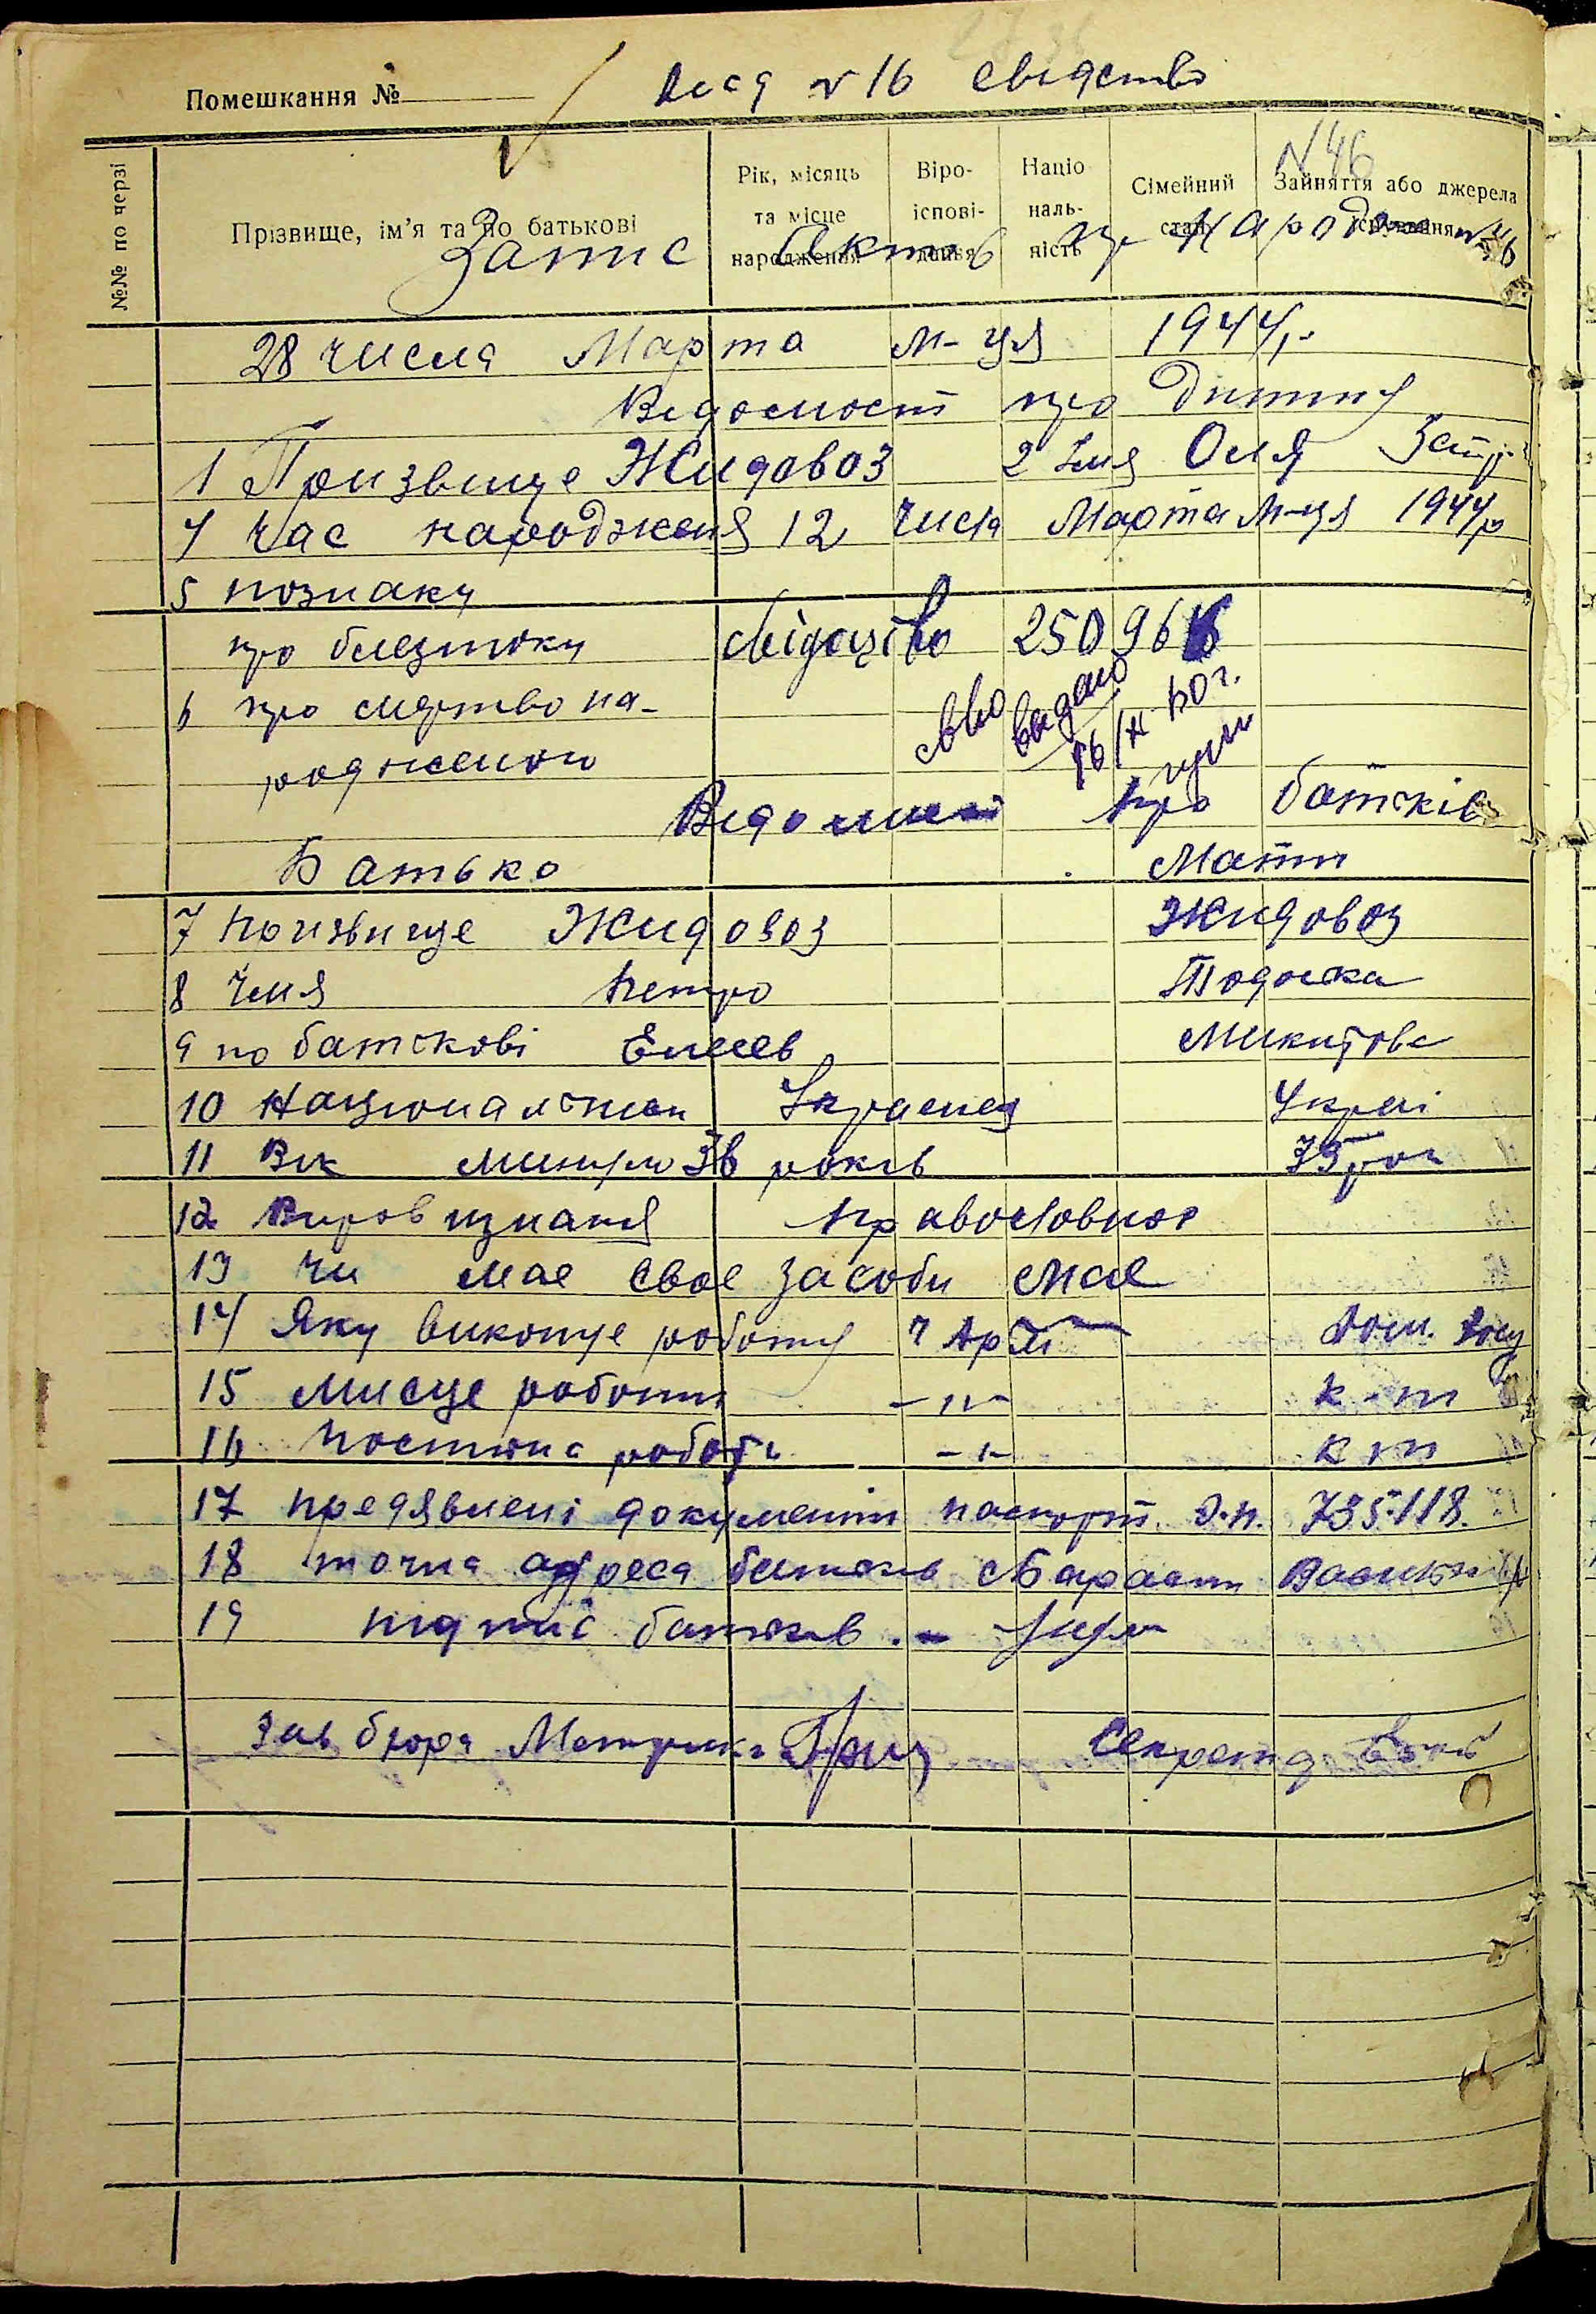 Помешкання №
№ 16 свидство
№46
№№ по черзі
Прізвище, ім'я та по батькові
Рік, місяць та місце народження
Віро-іспові-дання
Націо наль-ність
Сімейний стан
Зайняття або джерела існування
Запис Актов про Народж №46
28 числа Марта м-ця 1944 р
Ведомост про дитину
1 Призвище Жидовоз 2 Имя Оля 3 ст
4 час народженя 12 числа Марта м-ця 1944 р
5 познаку
про близнюку свідоцтво 250966
6 про мертво на-
родженою
св-во выдано
16/X 50 г.
Ведомист про батьків
Батько Мати
7 призвище Жидовоз Жидовоз
8 Имя Петро Тодоска
9 по батькові Елисев Микитовс
10 Национальност Украенец Укреі
11 Вик минуло 36 років 35 рок
12 Вировизнаня православное
13 чи мае свое засоби мае
14 Яку виконуе роботу Арм Дом.
15 мисце роботи -"- к-т
16 постоина робота -"- к-т
17 предявлені документи паспорт. 735118.
18 точна адреса батьків
19 підпис батьків
Зав бюра Метрик Секретар